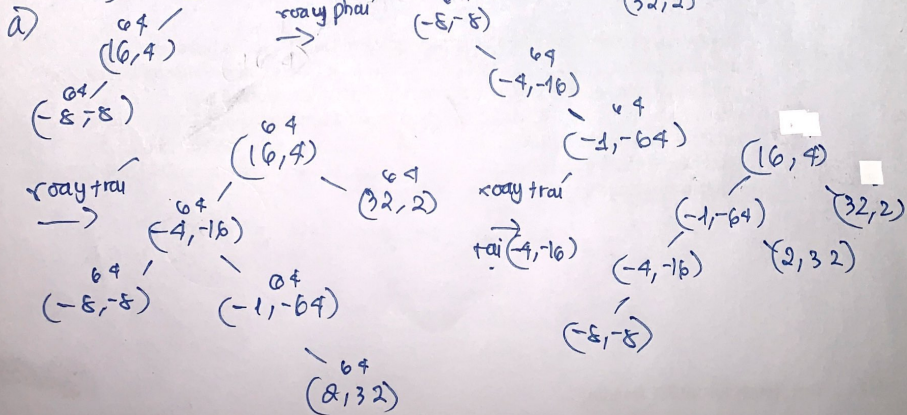 a)
64
(16,4)
64
(-8,-8)
xoay phải
(-8,-8)
64
(-4,-16)
64
(-1,-64)
(32,2)
xoay trái
64
(16,4)
64
(-4,-16)
64
(32,2)
64
(-8,-8)
64
(-1,-64)
64
(2,32)
xoay trái
tại (-4,-16)
(16,4)
(-1,-64)
(32,2)
(-4,-16)
(2,32)
(-8,-8)